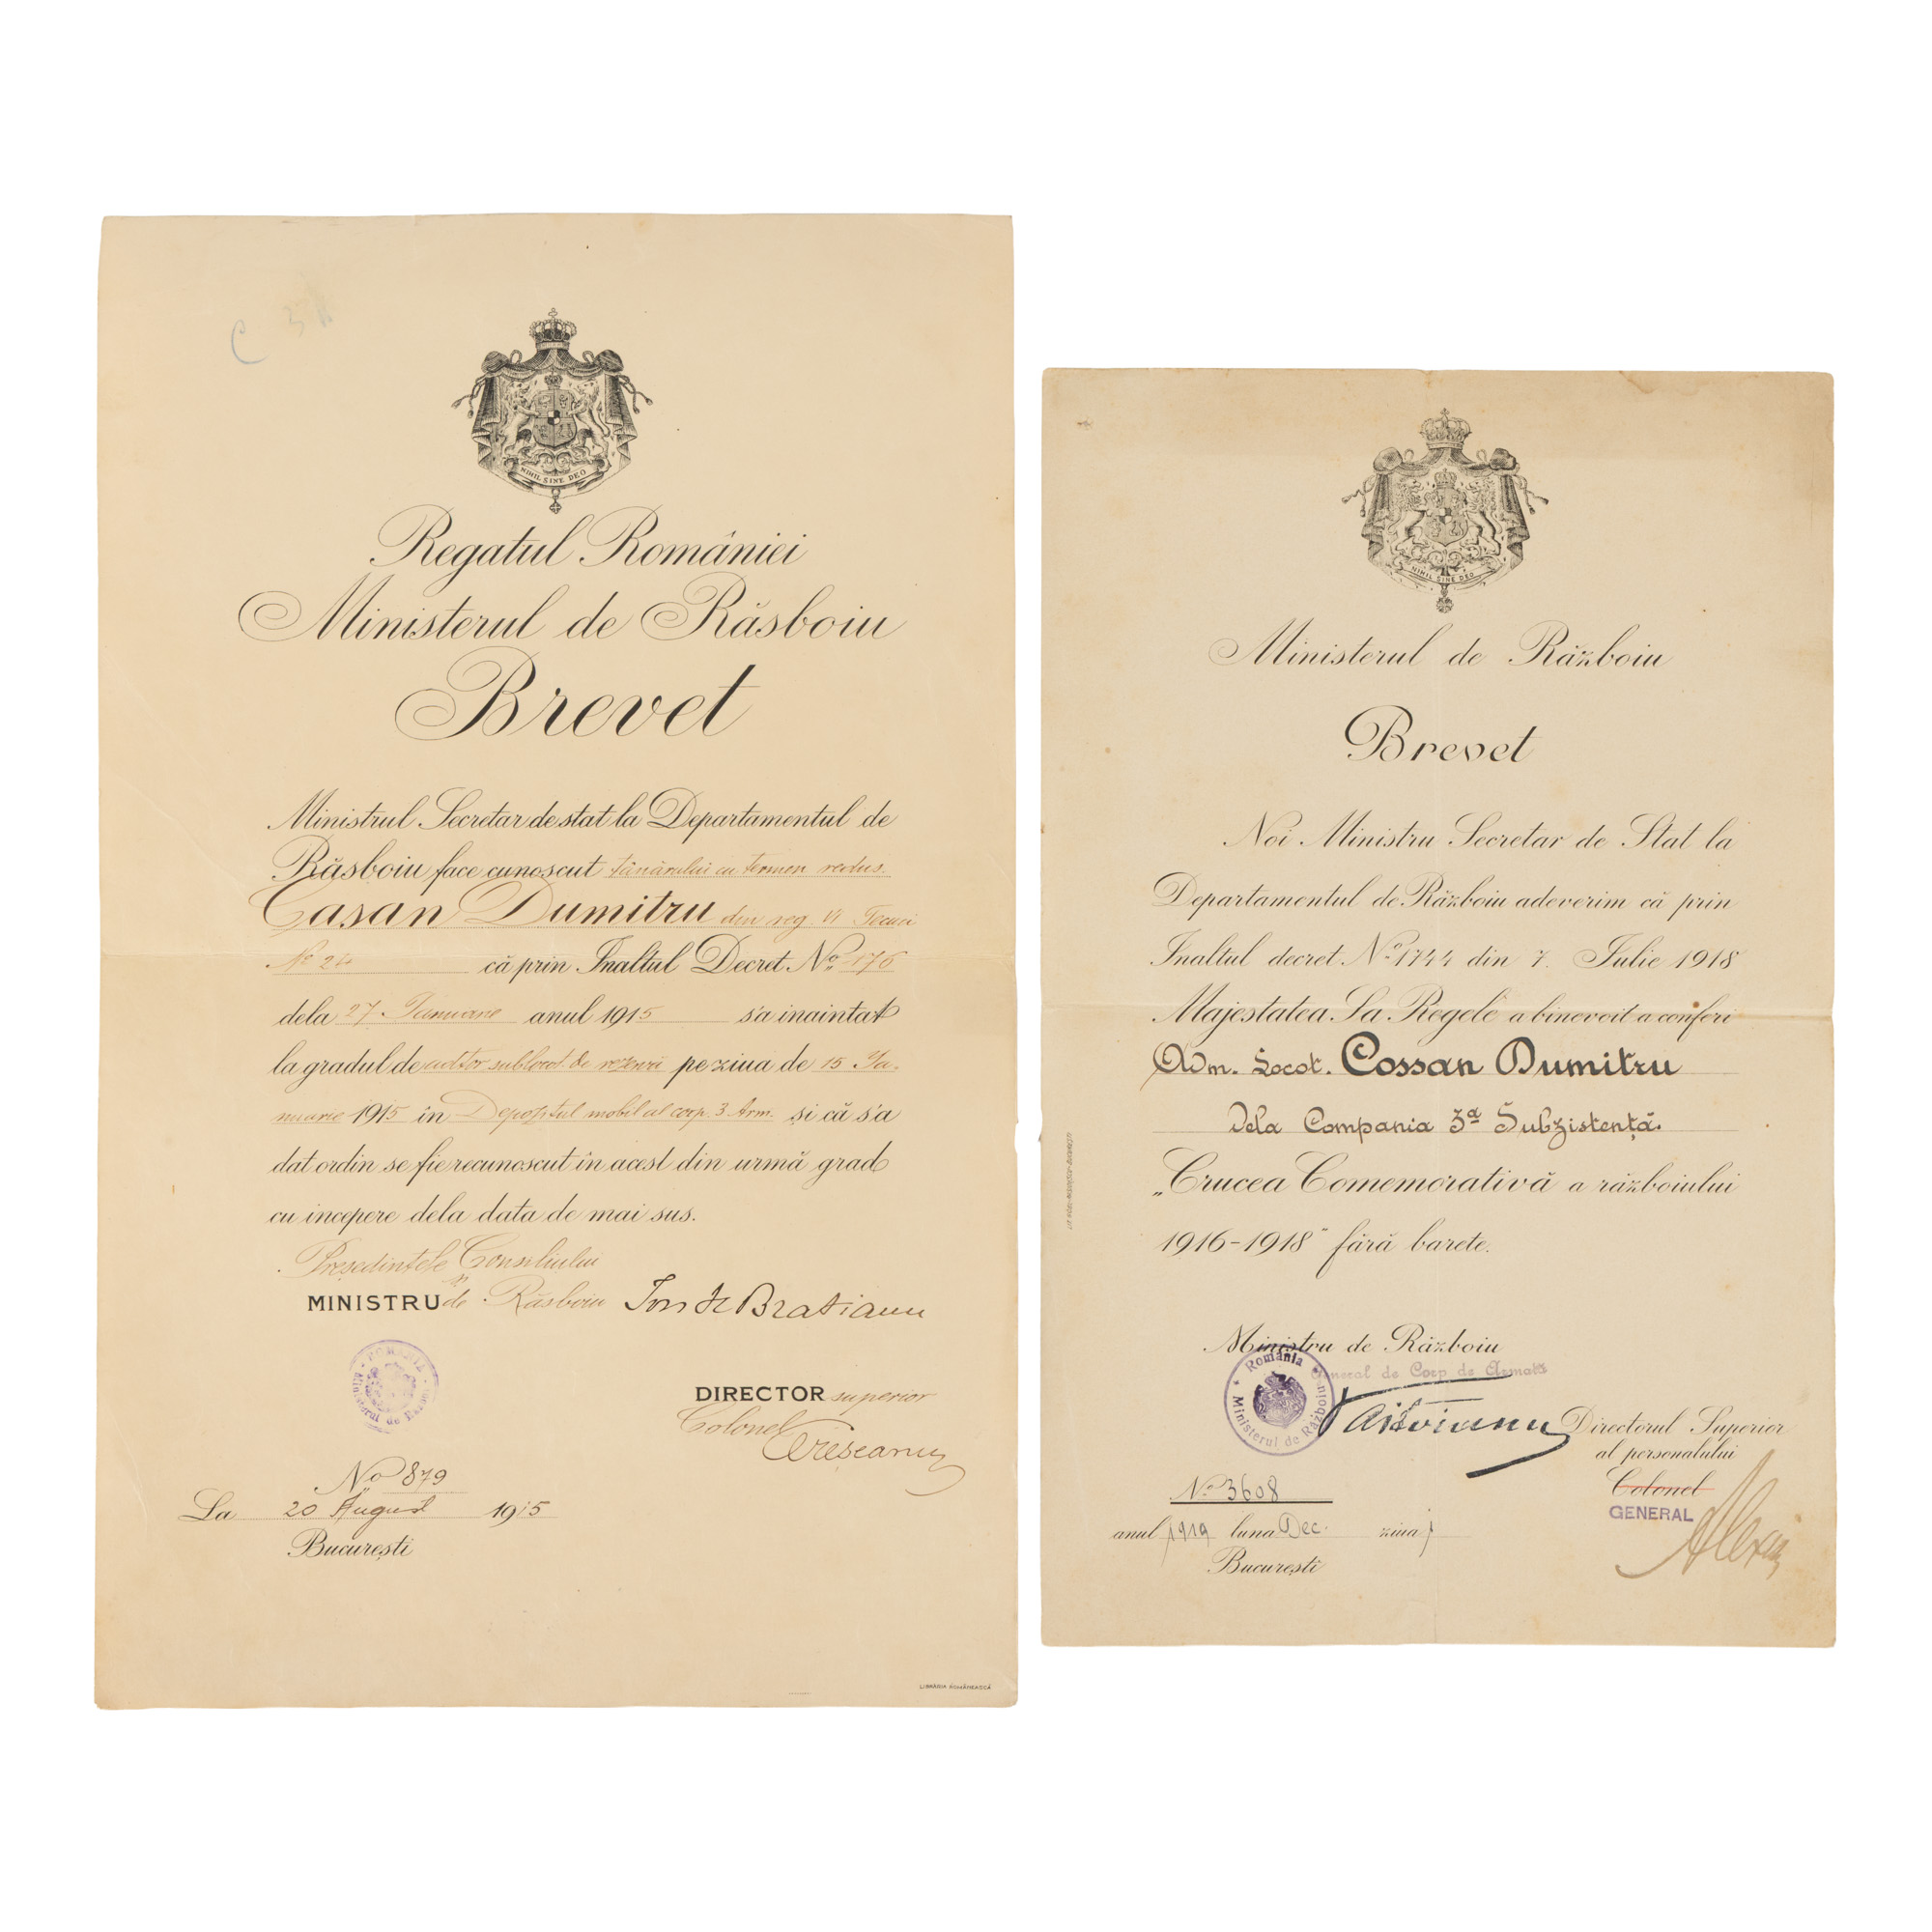 C
NIHIL SINE DEO
Regatul României
Ministerul de Răsboiu
Brevet
Ministrul Secretar de stat la Departamentul de
Răsboiu face cunoscut tânărului cu termen redus.
Casan Dumitru din reg. VI Tecuci
No 24 că prin Inaltul Decret No 176
dela 27 Ianuarie anul 1915 s'a inaintat
la gradul de sublocot. de rezervă pe ziua de 15 Ia-
nuarie 1915 în Depozitul mobil al corp. 3 Arm. și că s'a
dat ordin se fie recunoscut în acest din urmă grad
cu incepere dela data de mai sus.
Președintele Consiliului
MINISTRU de Răsboiu Ion I C Bratianu
ROMANIA Ministerul de Resboiu
DIRECTOR superior
Colonel
No 879
La 20 August 1915
București
LIBRĂRIA ROMÂNEASCĂ
NIHIL SINE DEO
Ministerul de Războiu
Brevet
Noi Ministru Secretar de Stat la
Departamentul de Războiu adeverim că prin
Inaltul decret No 1744 din 7. Iulie 1918
Majestatea Sa Regele a binevoit a conferi
Adm. Locot. Cossan Dumitru
Dela Compania 3a Subzistență.
„Crucea Comemorativă a războiului
1916-1918" fără barete.
Ministru de Războiu
General de Corp de Armată
România Ministerul de Războiu
Vaitoianu
Directorul Superior
al personalului
Colonel
GENERAL
Alexiu
No 3608
anul 1919 luna Dec. ziua 1
București